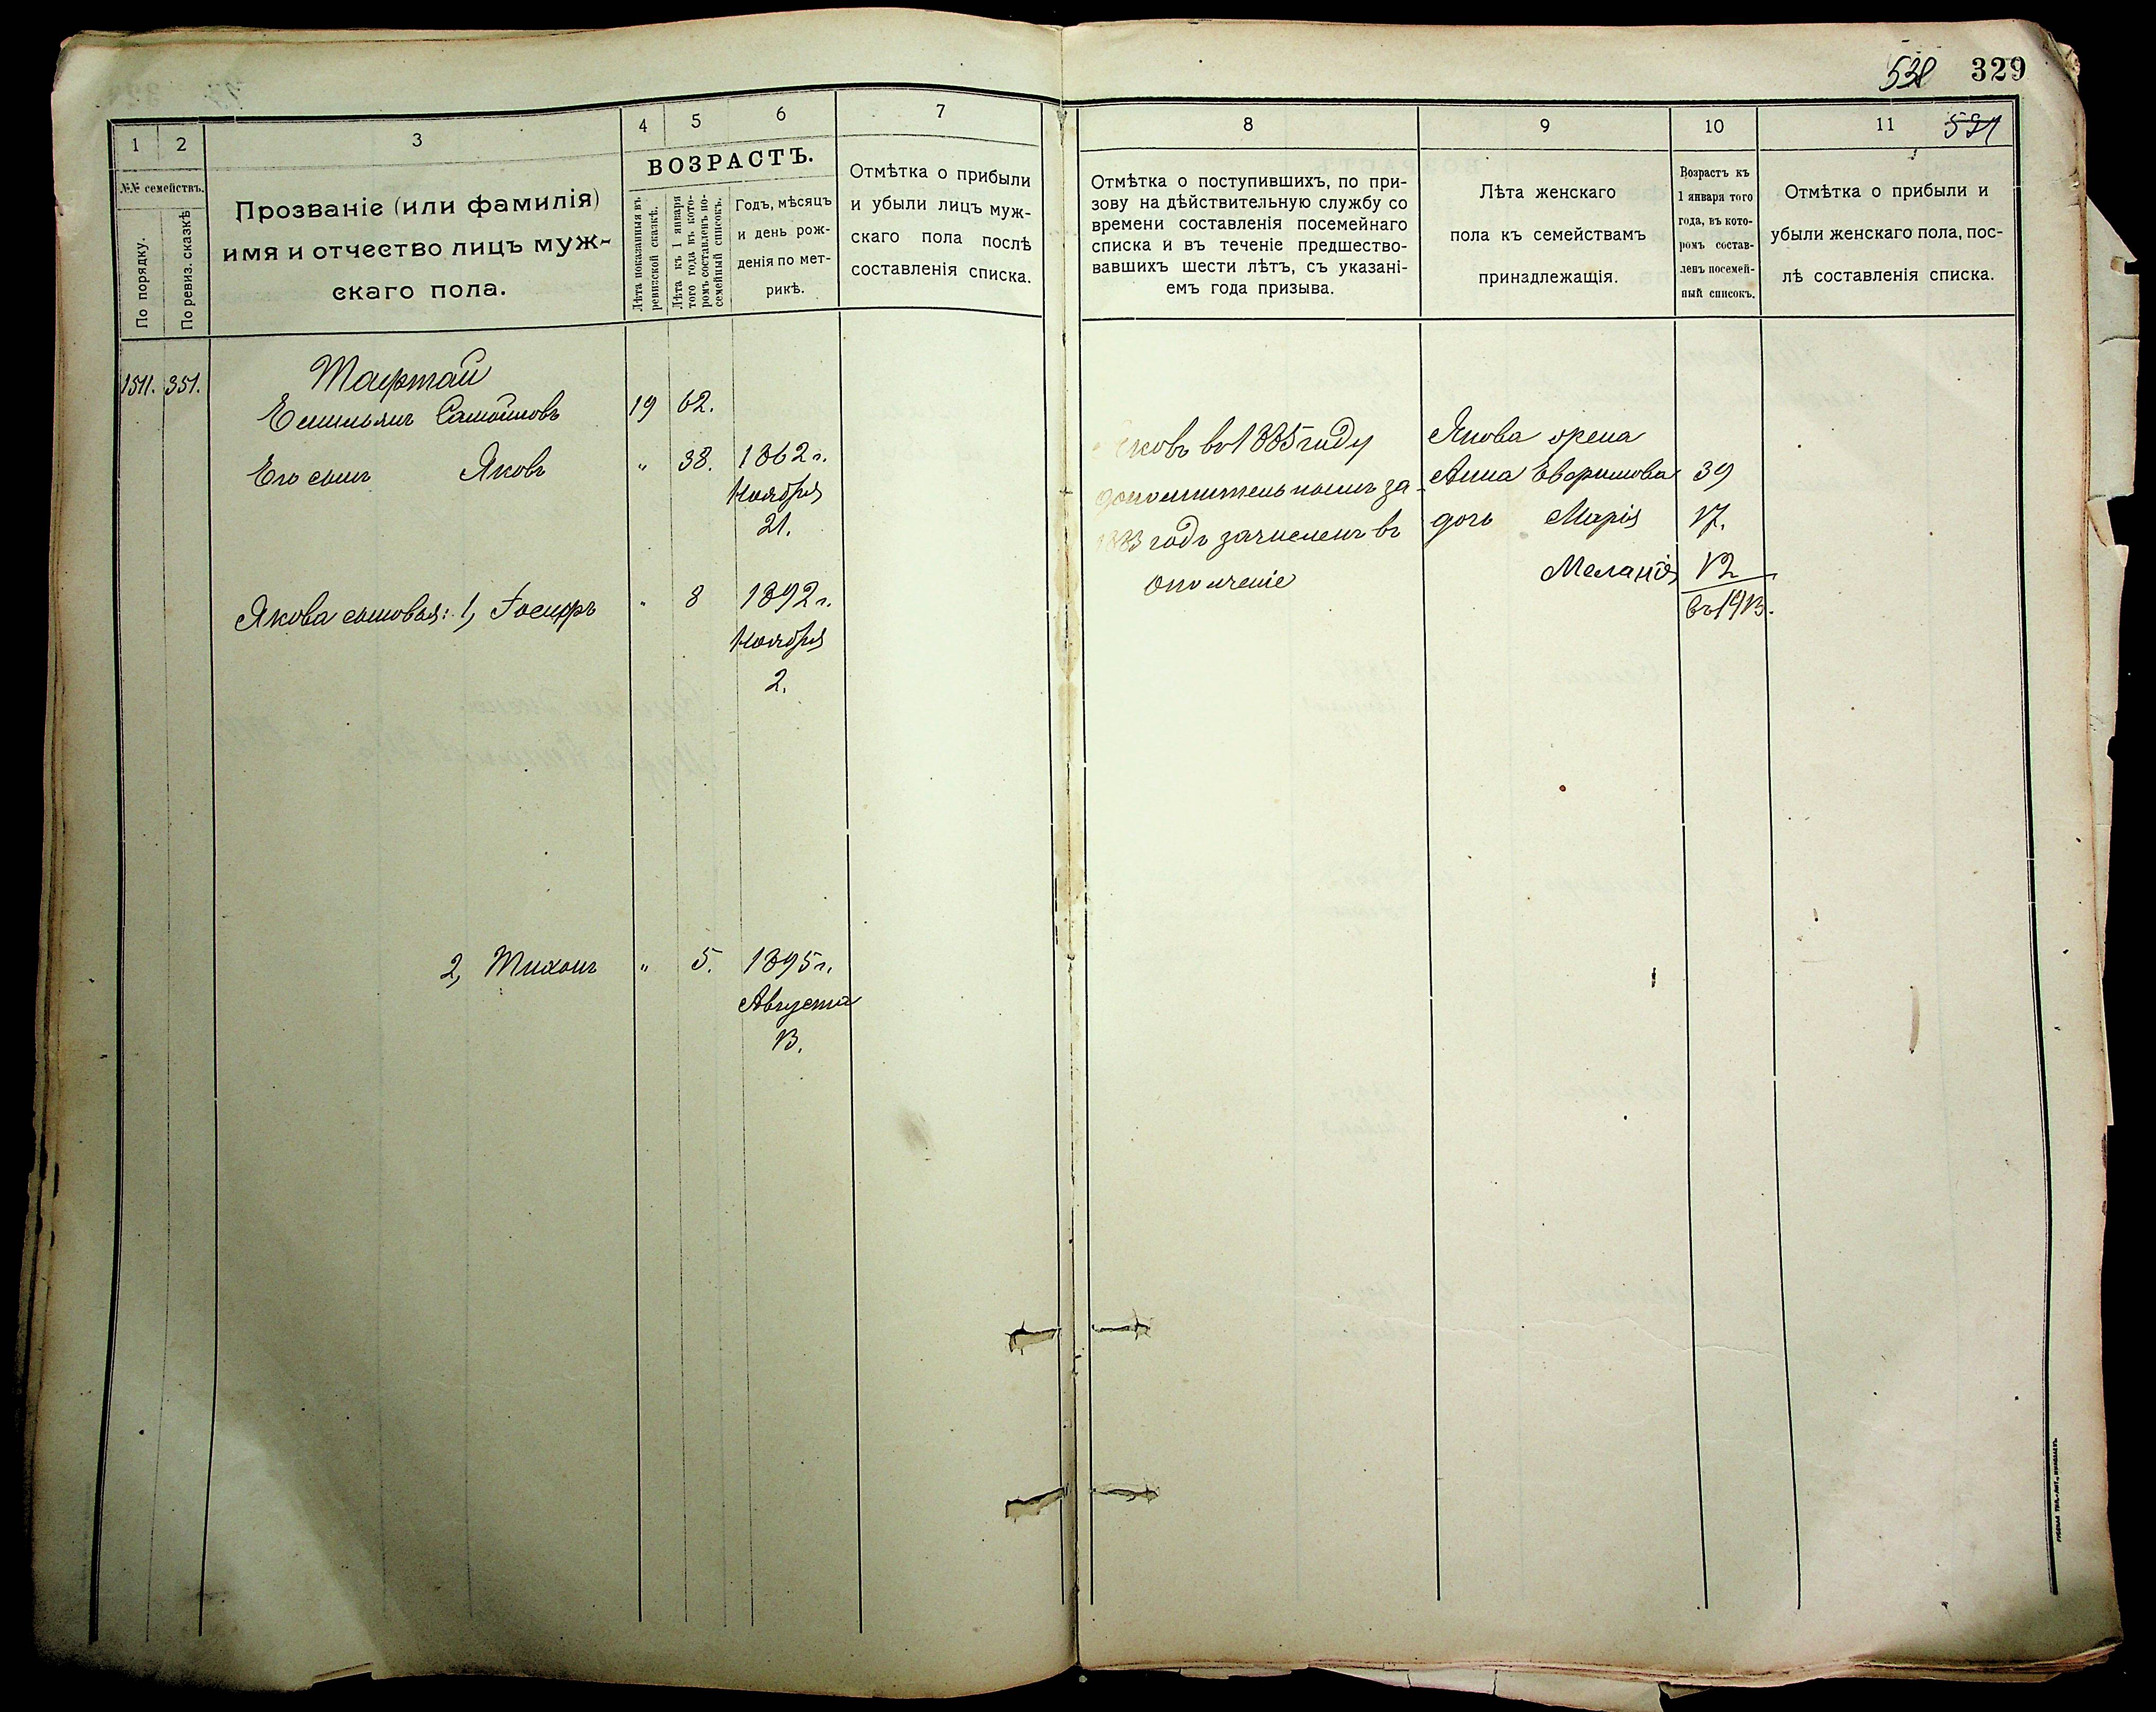 538 329
1 2 3 4 5 6 7
№№ семействъ.
По порядку.
По ревиз. сказкѣ
Прозваніе (или фамилія)
имя и отчество лицъ муж-
скаго пола.
ВОЗРАСТЪ.
Лѣта показанныя въ
ревизской сказкѣ.
Лѣта къ 1 января
того года въ кото-
ромъ составленъ по-
семейный списокъ.
Годъ, мѣсяцъ
и день рож-
денія по мет-
рикѣ.
Отмѣтка о прибыли
и убыли лицъ муж-
скаго пола послѣ
составленія списка.
1511. 351.
Тафтай
Емильянъ Самойловъ 19 62.
Его сынъ Яковъ " 38. 1862 г.
Ноября
21.
Якова сыновья: 1, Іосифъ " 8 1892 г.
Ноября
2.
2, Тихонъ " 5. 1895 г.
Августа
13.
8 9 10 11
Отмѣтка о поступившихъ, по при-
зову на дѣйствительную службу со
времени составленія посемейнаго
списка и въ теченіе предшество-
вавшихъ шести лѣтъ, съ указані-
емъ года призыва.
Лѣта женскаго
пола къ семействамъ
принадлежащія.
Возрастъ къ
1 января того
года, въ кото-
ромъ состав-
ленъ посемей-
ный списокъ.
Отмѣтка о прибыли и
убыли женскаго пола, пос-
лѣ составленія списка.
Яковъ въ 1885 году
дополнительнымъ за
1883 годъ зачисленъ въ
ополченіе
Якова жена
Анна Евфимова 39
дочь Марія 17.
Меланія 12
въ 1913.